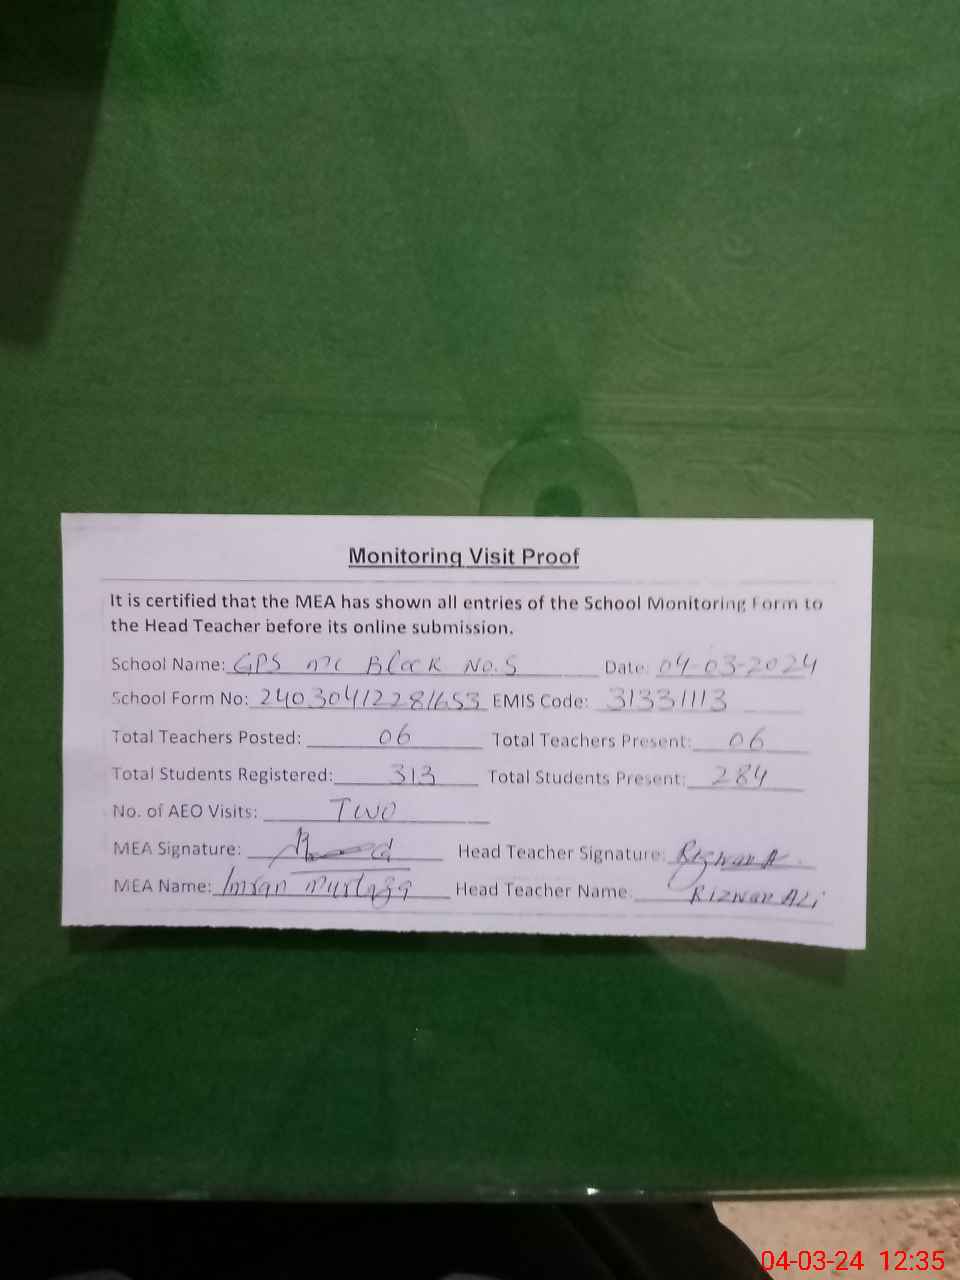 Monitoring Visit Proof
It is certified that the MEA has shown all entries of the School Monitoring Form to
the Head Teacher before its online submission.
School Name: GPS MC Block No. 5 Date: 04-03-2024
School Form No: 240304122281653 EMIS Code: 31331113
Total Teachers Posted: 06 Total Teachers Present: 06
Total Students Registered: 313 Total Students Present: 284
No. of AEO Visits: Two
MEA Signature: Head Teacher Signature: Rizwan A
MEA Name: Imran Murtaza Head Teacher Name: Rizwan Ali
04-03-24 12:35